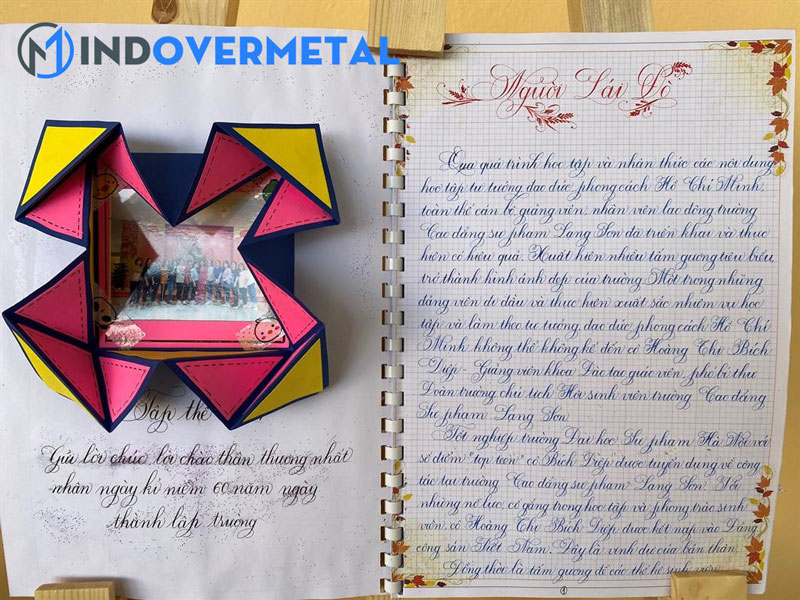 INDOVERMETAL
Tập thể
Gửi lời chúc, lời chào thân thương nhất
nhân ngày kỉ niệm 60 năm ngày
thành lập trường
Người Lái Đò
Qua quá trình học tập và nhận thức các nội dung
học tập tư tưởng, đạo đức, phong cách Hồ Chí Minh,
toàn thể cán bộ, giảng viên, nhân viên lao động trường
Cao đẳng sư phạm Lạng Sơn đã triển khai và thực
hiện có hiệu quả. Xuất hiện nhiều tấm gương tiêu biểu,
trở thành hình ảnh đẹp của trường. Một trong những
đảng viên đi đầu và thực hiện xuất sắc nhiệm vụ học
tập và làm theo tư tưởng, đạo đức, phong cách Hồ Chí
Minh không thể không kể đến cô Hoàng Thị Bích
Diệp - Giảng viên khoa Đào tạo giáo viên, phó bí thư
Đoàn trường, chủ tịch Hội sinh viên trường Cao đẳng
Sư phạm Lạng Sơn.
Tốt nghiệp trường Đại học Sư phạm Hà Nội với
số điểm "top ten" cô Bích Diệp được tuyển dụng về công
tác tại trường Cao đẳng sư phạm Lạng Sơn. Với
những nỗ lực, cố gắng trong học tập và phong trào sinh
viên, cô Hoàng Thị Bích Diệp được kết nạp vào Đảng
cộng sản Việt Nam. Đây là vinh dự của bản thân
Đồng thời là tấm gương để các thế hệ sinh viên